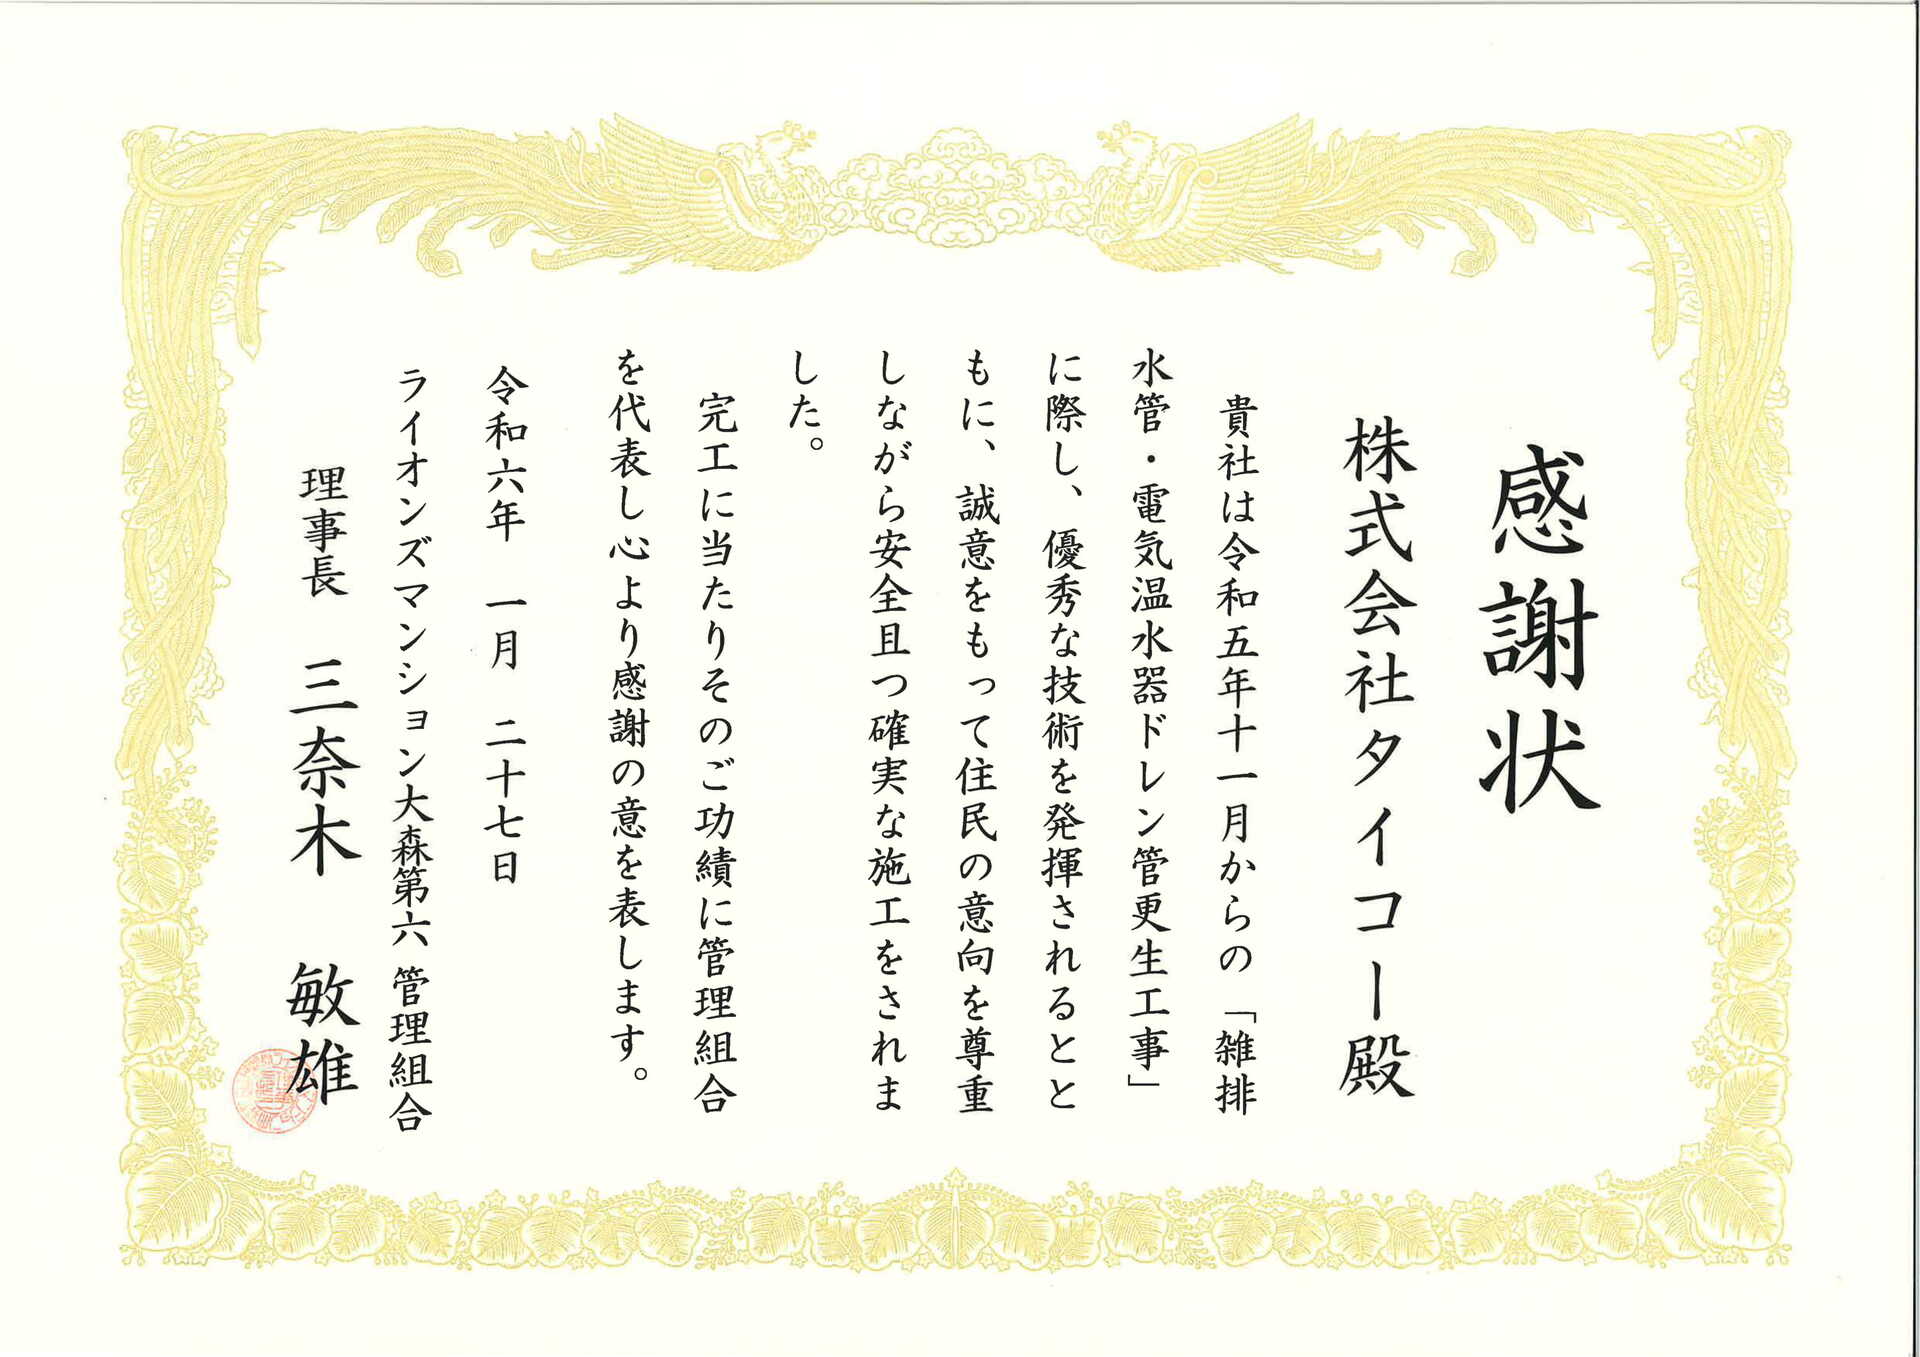 感謝状
株式会社タイコー殿
貴社は令和五年十一月からの「雑排
水管・電気温水器ドレン管更生工事」
に際し、優秀な技術を発揮されるとと
もに、誠意をもって住民の意向を尊重
しながら安全且つ確実な施工をされま
した。
完工に当たりそのご功績に管理組合
を代表し心より感謝の意を表します。
令和六年 一月 二十七日
ライオンズマンション大森第六 管理組合
理事長 三奈木 敏雄